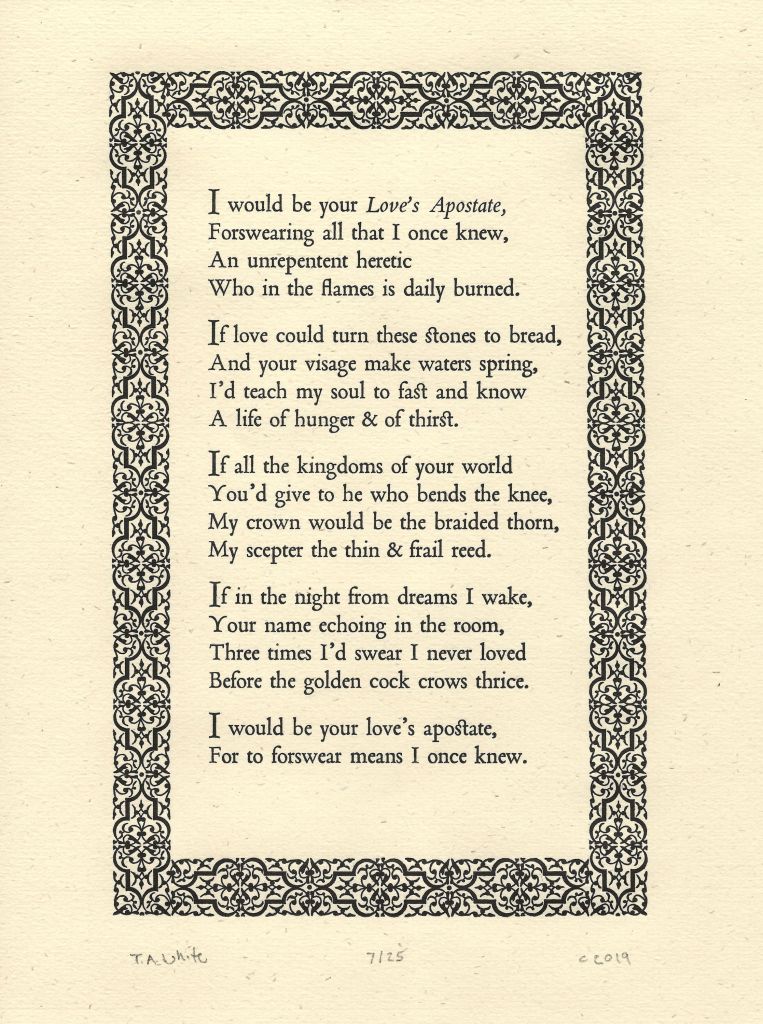 I would be your Love's Apostate,
Forswearing all that I once knew,
An unrepentent heretic
Who in the flames is daily burned.
If love could turn these stones to bread,
And your visage make waters spring,
I'd teach my soul to fast and know
A life of hunger & of thirst.
If all the kingdoms of your world
You'd give to he who bends the knee,
My crown would be the braided thorn,
My scepter the thin & frail reed.
If in the night from dreams I wake,
Your name echoing in the room,
Three times I'd swear I never loved
Before the golden cock crows thrice.
I would be your love's apostate,
For to forswear means I once knew.
T.A. White 7/25 c 2019